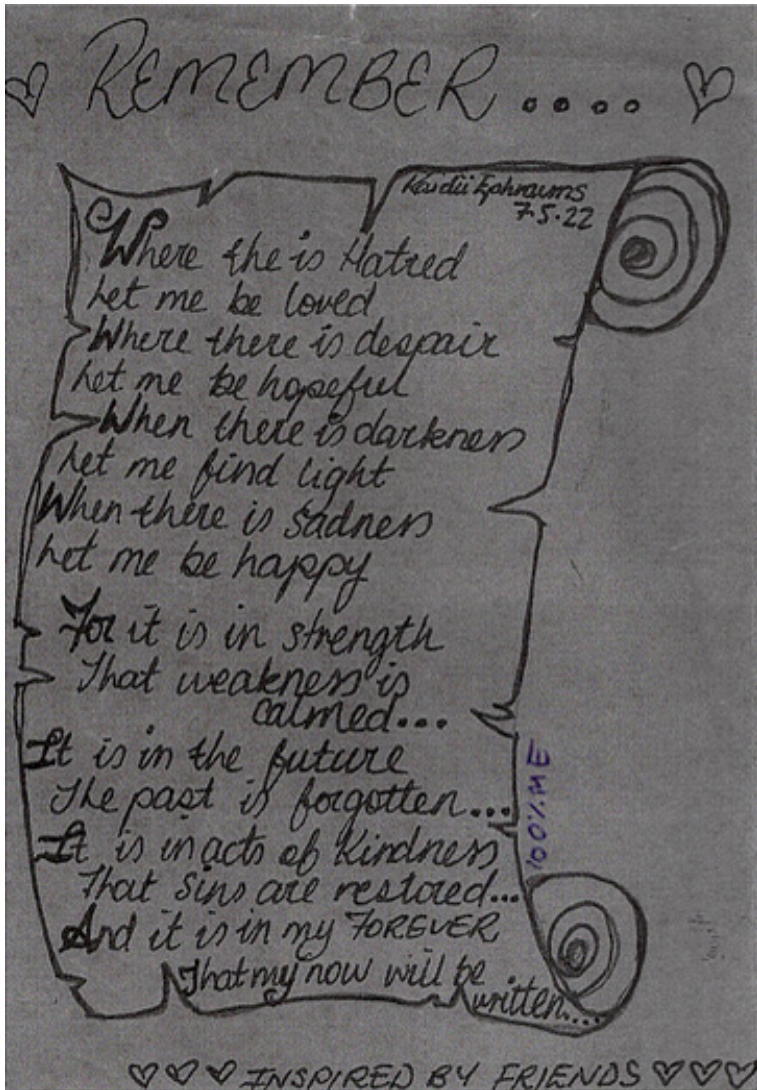 REMEMBER....
Kaidii Ephraums
7.5.22
Where the is Hatred
Let me be loved
Where there is despair
Let me be hopeful
When there is darkness
Let me find light
When there is sadness
Let me be happy
For it is in strength
That weakness is
calmed...
It is in the future
The past is forgotten...
It is in acts of kindness
That sins are restored...
And it is in my FOREVER
That my now will be
written....
100% ME
INSPIRED BY FRIENDS